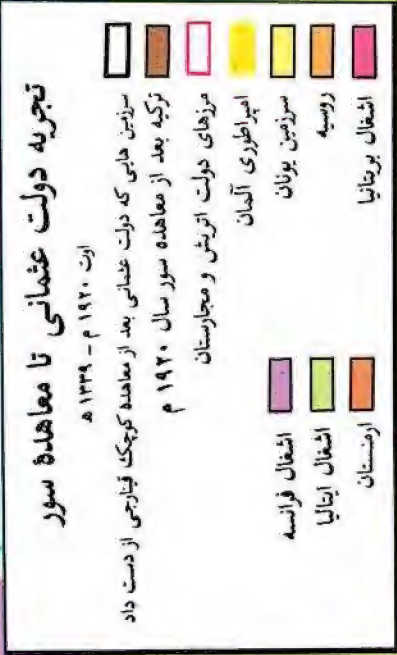 تجزیه دولت عثمانی تا معاهدهٔ سور
اوت ۱۹۲۰ م - ۱۳۳۹ ه
سرزمین هایی که دولت عثمانی بعد از معاهده کوچک قینارجی از دست داد
ترکیه بعد از معاهده سور سال ۱۹۲۰ م
مرزهای دولت اتریش و مجارستان
امپراطوری آلمان
سرزمین یونان
روسیه
اشغال بریتانیا
اشغال فرانسه
اشغال ایتالیا
ارمنستان